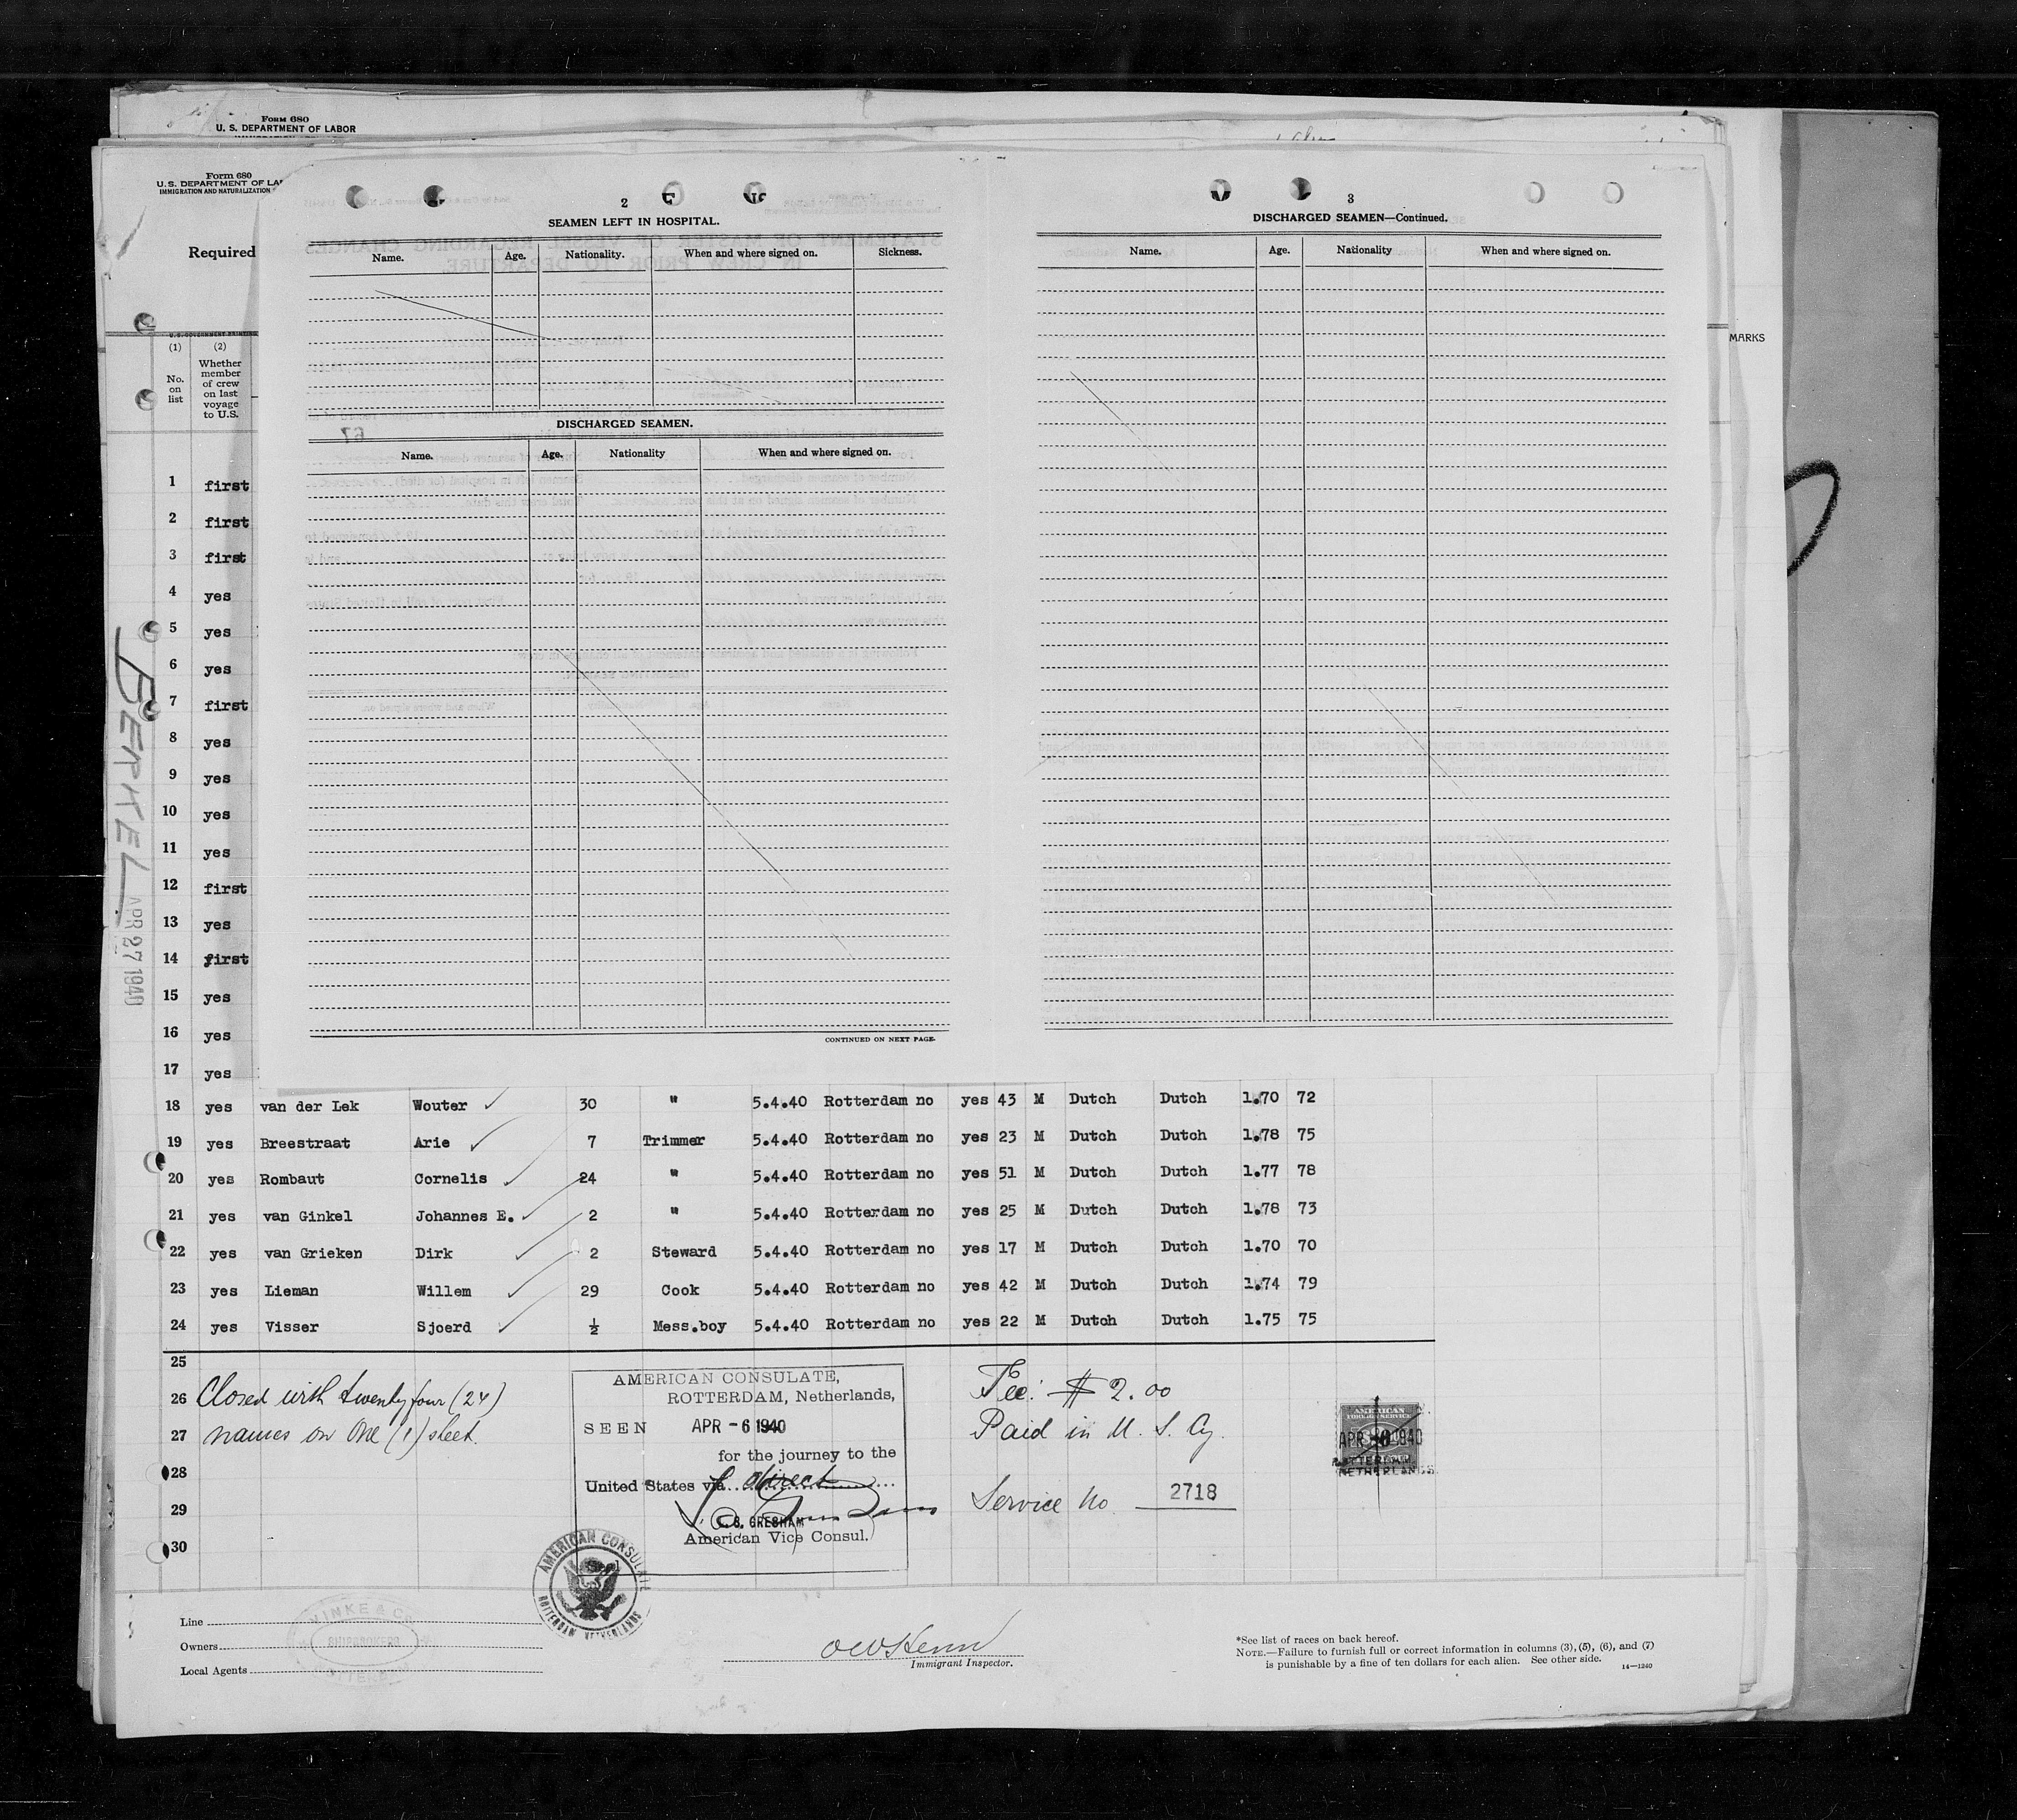 Form 680
U. S. DEPARTMENT OF LABOR
Form 680
U. S. DEPARTMENT OF LA
IMMIGRATION AND NATURALIZATION
Required
MARKS
(1) (2)
No. on list
Whether member of crew on last voyage to U.S.
2
SEAMEN LEFT IN HOSPITAL.
Name. Age. Nationality. When and where signed on. Sickness.
DISCHARGED SEAMEN.
Name. Age. Nationality When and where signed on.
CONTINUED ON NEXT PAGE.
3
DISCHARGED SEAMEN—Continued.
Name. Age. Nationality When and where signed on.
67
BETHEL
APR 27 1940
1 first
2 first
3 first
4 yes
5 yes
6 yes
7 first
8 yes
9 yes
10 yes
11 yes
12 first
13 yes
14 first
15 yes
16 yes
17 yes
18 yes van der Lek Wouter 30 " 5.4.40 Rotterdam no yes 43 M Dutch Dutch 1.70 72
19 yes Breestraat Arie 7 Trimmer 5.4.40 Rotterdam no yes 23 M Dutch Dutch 1.78 75
20 yes Rombaut Cornelis 24 " 5.4.40 Rotterdam no yes 51 M Dutch Dutch 1.77 78
21 yes van Ginkel Johannes E. 2 " 5.4.40 Rotterdam no yes 25 M Dutch Dutch 1.78 73
22 yes van Grieken Dirk 2 Steward 5.4.40 Rotterdam no yes 17 M Dutch Dutch 1.70 70
23 yes Lieman Willem 29 Cook 5.4.40 Rotterdam no yes 42 M Dutch Dutch 1.74 79
24 yes Visser Sjoerd ½ Mess.boy 5.4.40 Rotterdam no yes 22 M Dutch Dutch 1.75 75
25
26
27
28
29
30
Closed with twenty four (24)
names on One (1) sheet.
AMERICAN CONSULATE,
ROTTERDAM, Netherlands,
SEEN APR -6 1940
for the journey to the
United States via direct
C. S. GRESHAM
American Vice Consul.
AMERICAN CONSULATE
ROTTERDAM NETHERLANDS
Fee: $ 2.00
Paid in U. S. Cy.
Service No. 2718
AMERICAN
FOREIGN SERVICE
APR -6 1940
ROTTERDAM
NETHERLANDS
Line
Owners
Local Agents
VINKE & Co
Immigrant Inspector.
*See list of races on back hereof.
NOTE.—Failure to furnish full or correct information in columns (3), (5), (6), and (7)
is punishable by a fine of ten dollars for each alien. See other side.
14—1240